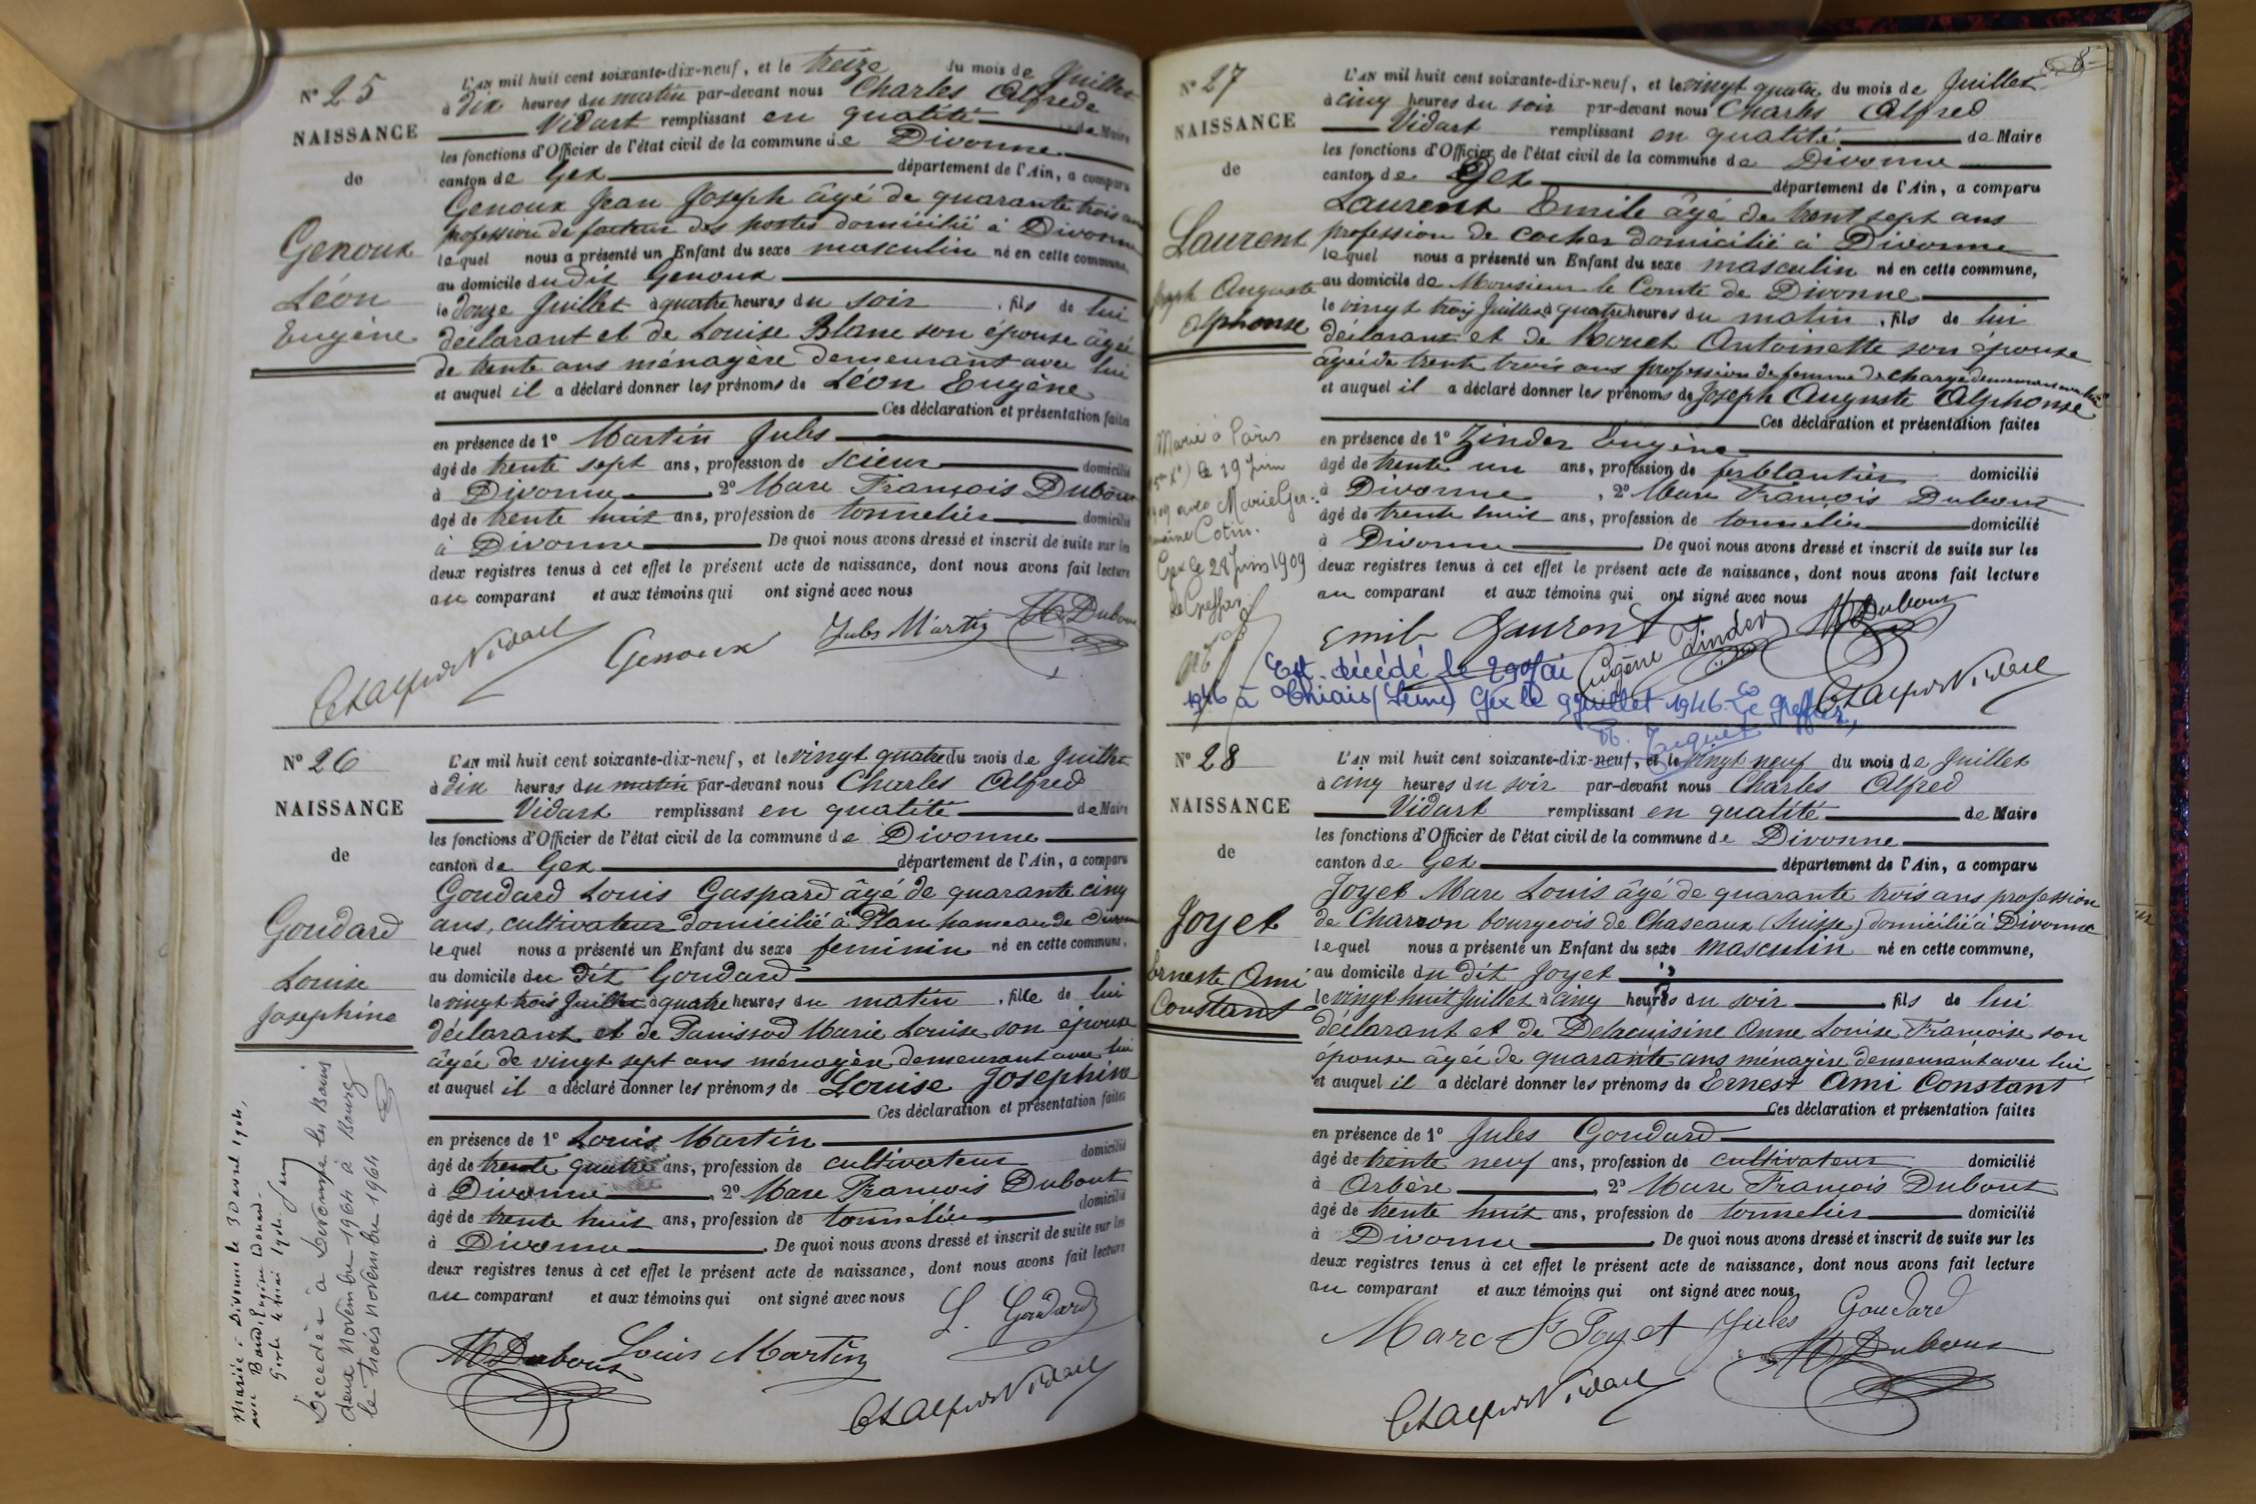 N° 25
NAISSANCE
de
Genoux
Léon
Eugène
L'AN mil huit cent soixante-dix-neuf, et le treize du mois de Juillet
à dix heures du matin par-devant nous Charles Alfrede
Vidart remplissant en qualité de Maire
les fonctions d'Officier de l'état civil de la commune de Divonne
canton de Gex département de l'Ain, a comparu
Genoux Jean Joseph âgé de quarante trois ans
profession de facteur des postes domicilié à Divonne
lequel nous a présenté un Enfant du sexe masculin né en cette commune,
au domicile dudit Genoux
le douze Juillet à quatre heures du soir, fils de lui
déclarant et de Louise Blanc son épouse âgée
de trente ans ménagère demeurant avec lui
et auquel il a déclaré donner les prénoms de Léon Eugène
Ces déclaration et présentation faites
en présence de 1° Martin Jules
âgé de trente sept ans, profession de scieur domicilié
à Divonne, 2° Marc François Dubout
âgé de trente huit ans, profession de tonnelier domicilié
à Divonne De quoi nous avons dressé et inscrit de suite sur les
deux registres tenus à cet effet le présent acte de naissance, dont nous avons fait lecture
au comparant et aux témoins qui ont signé avec nous
Ch Alfred Vidart Genoux Jules Martin M Dubout
N° 26
NAISSANCE
de
Goudard
Louise
Josephine
Mariée à Divonne le 30 avril 1904,
avec Baud, Eugène
Gex le 4 mai 1904.
Décédée à Divonne les Bains
deux Novembre 1964 à Bourg
le trois novembre 1964
L'AN mil huit cent soixante-dix-neuf, et le vingt quatre du mois de Juillet
à dix heures du matin par-devant nous Charles Alfred
Vidart remplissant en qualité de Maire
les fonctions d'Officier de l'état civil de la commune de Divonne
canton de Gex département de l'Ain, a comparu
Goudard Louis Gaspard âgé de quarante cinq
ans, cultivateur domicilié à Plan hameau de Divonne
lequel nous a présenté un Enfant du sexe feminin né en cette commune,
au domicile du dit Goudard
le vingt trois Juillet à quatre heures du matin, fille de lui
déclarant et de Panissod Marie Louise son épouse
âgée de vingt sept ans ménagère demeurant avec lui
et auquel il a déclaré donner les prénoms de Louise Josephine
Ces déclaration et présentation faites
en présence de 1° Louis Martin
âgé de trente quatre ans, profession de cultivateur domicilié
à Divonne, 2° Marc François Dubout
âgé de trente huit ans, profession de tonnelier domicilié
à Divonne. De quoi nous avons dressé et inscrit de suite sur les
deux registres tenus à cet effet le présent acte de naissance, dont nous avons fait lecture
au comparant et aux témoins qui ont signé avec nous
L. Goudard
M Dubout Louis Martin
Ch Alfred Vidart
8
N° 27
NAISSANCE
de
Laurent
Joseph Auguste
Alphonse
Marié à Paris
le 19 Juin
1909 avec Marie Ger-
maine Cotin.
Gex le 28 Juin 1909
Le Greffier
L'AN mil huit cent soixante-dix-neuf, et le vingt quatre du mois de Juillet
à cinq heures du soir par-devant nous Charles Alfred
Vidart remplissant en qualité de Maire
les fonctions d'Officier de l'état civil de la commune de Divonne
canton de Gex département de l'Ain, a comparu
Laurent Emile âgé de trent sept ans
profession de cocher domicilié à Divonne
lequel nous a présenté un Enfant du sexe masculin né en cette commune,
au domicile de Monsieur le Comte de Divonne
le vingt trois Juillet à quatre heures du matin, fils de lui
déclarant et de Antoinette son épouse
âgée de trente trois ans profession de femme de charge demeurant avec lui
et auquel il a déclaré donner les prénoms de Joseph Auguste Alphonse
Ces déclaration et présentation faites
en présence de 1° Zinder Eugène
âgé de trente un ans, profession de ferblantier domicilié
à Divonne, 2° Marc François Dubout
âgé de trente huit ans, profession de tonnelier domicilié
à Divonne De quoi nous avons dressé et inscrit de suite sur les
deux registres tenus à cet effet le présent acte de naissance, dont nous avons fait lecture
au comparant et aux témoins qui ont signé avec nous
Emile Laurent Eugène Zinder M Dubout
Est décédé le 29 Mai
1946 à Thiais (Seine) Gex le 9 Juillet 1946 Le Greffier,
Ch Alfred Vidart
N° 28
NAISSANCE
de
Joyet
Erneste Ami
Constant
L'AN mil huit cent soixante-dix-neuf, et le vingt neuf du mois de Juillet
à cinq heures du soir par-devant nous Charles Alfred
Vidart remplissant en qualité de Maire
les fonctions d'Officier de l'état civil de la commune de Divonne
canton de Gex département de l'Ain, a comparu
Joyet Marc Louis âgé de quarante trois ans profession
de Charron bourgeois de Chaseaux (Suisse) domicilié à Divonne
lequel nous a présenté un Enfant du sexe masculin né en cette commune,
au domicile du dit Joyet
le vingt huit Juillet à cinq heures du soir fils de lui
déclarant et de Delacuisine Anne Louise Françoise son
épouse âgée de quarante ans ménagère demeurant avec lui
et auquel il a déclaré donner les prénoms de Ernest Ami Constant
Ces déclaration et présentation faites
en présence de 1° Jules Goudard
âgé de trente neuf ans, profession de cultivateur domicilié
à Arbère, 2° Marc François Dubout
âgé de trente huit ans, profession de tonnelier domicilié
à Divonne. De quoi nous avons dressé et inscrit de suite sur les
deux registres tenus à cet effet le présent acte de naissance, dont nous avons fait lecture
au comparant et aux témoins qui ont signé avec nous
Marc Ls Joyet Jules Goudard
M Dubout
Ch Alfred Vidart